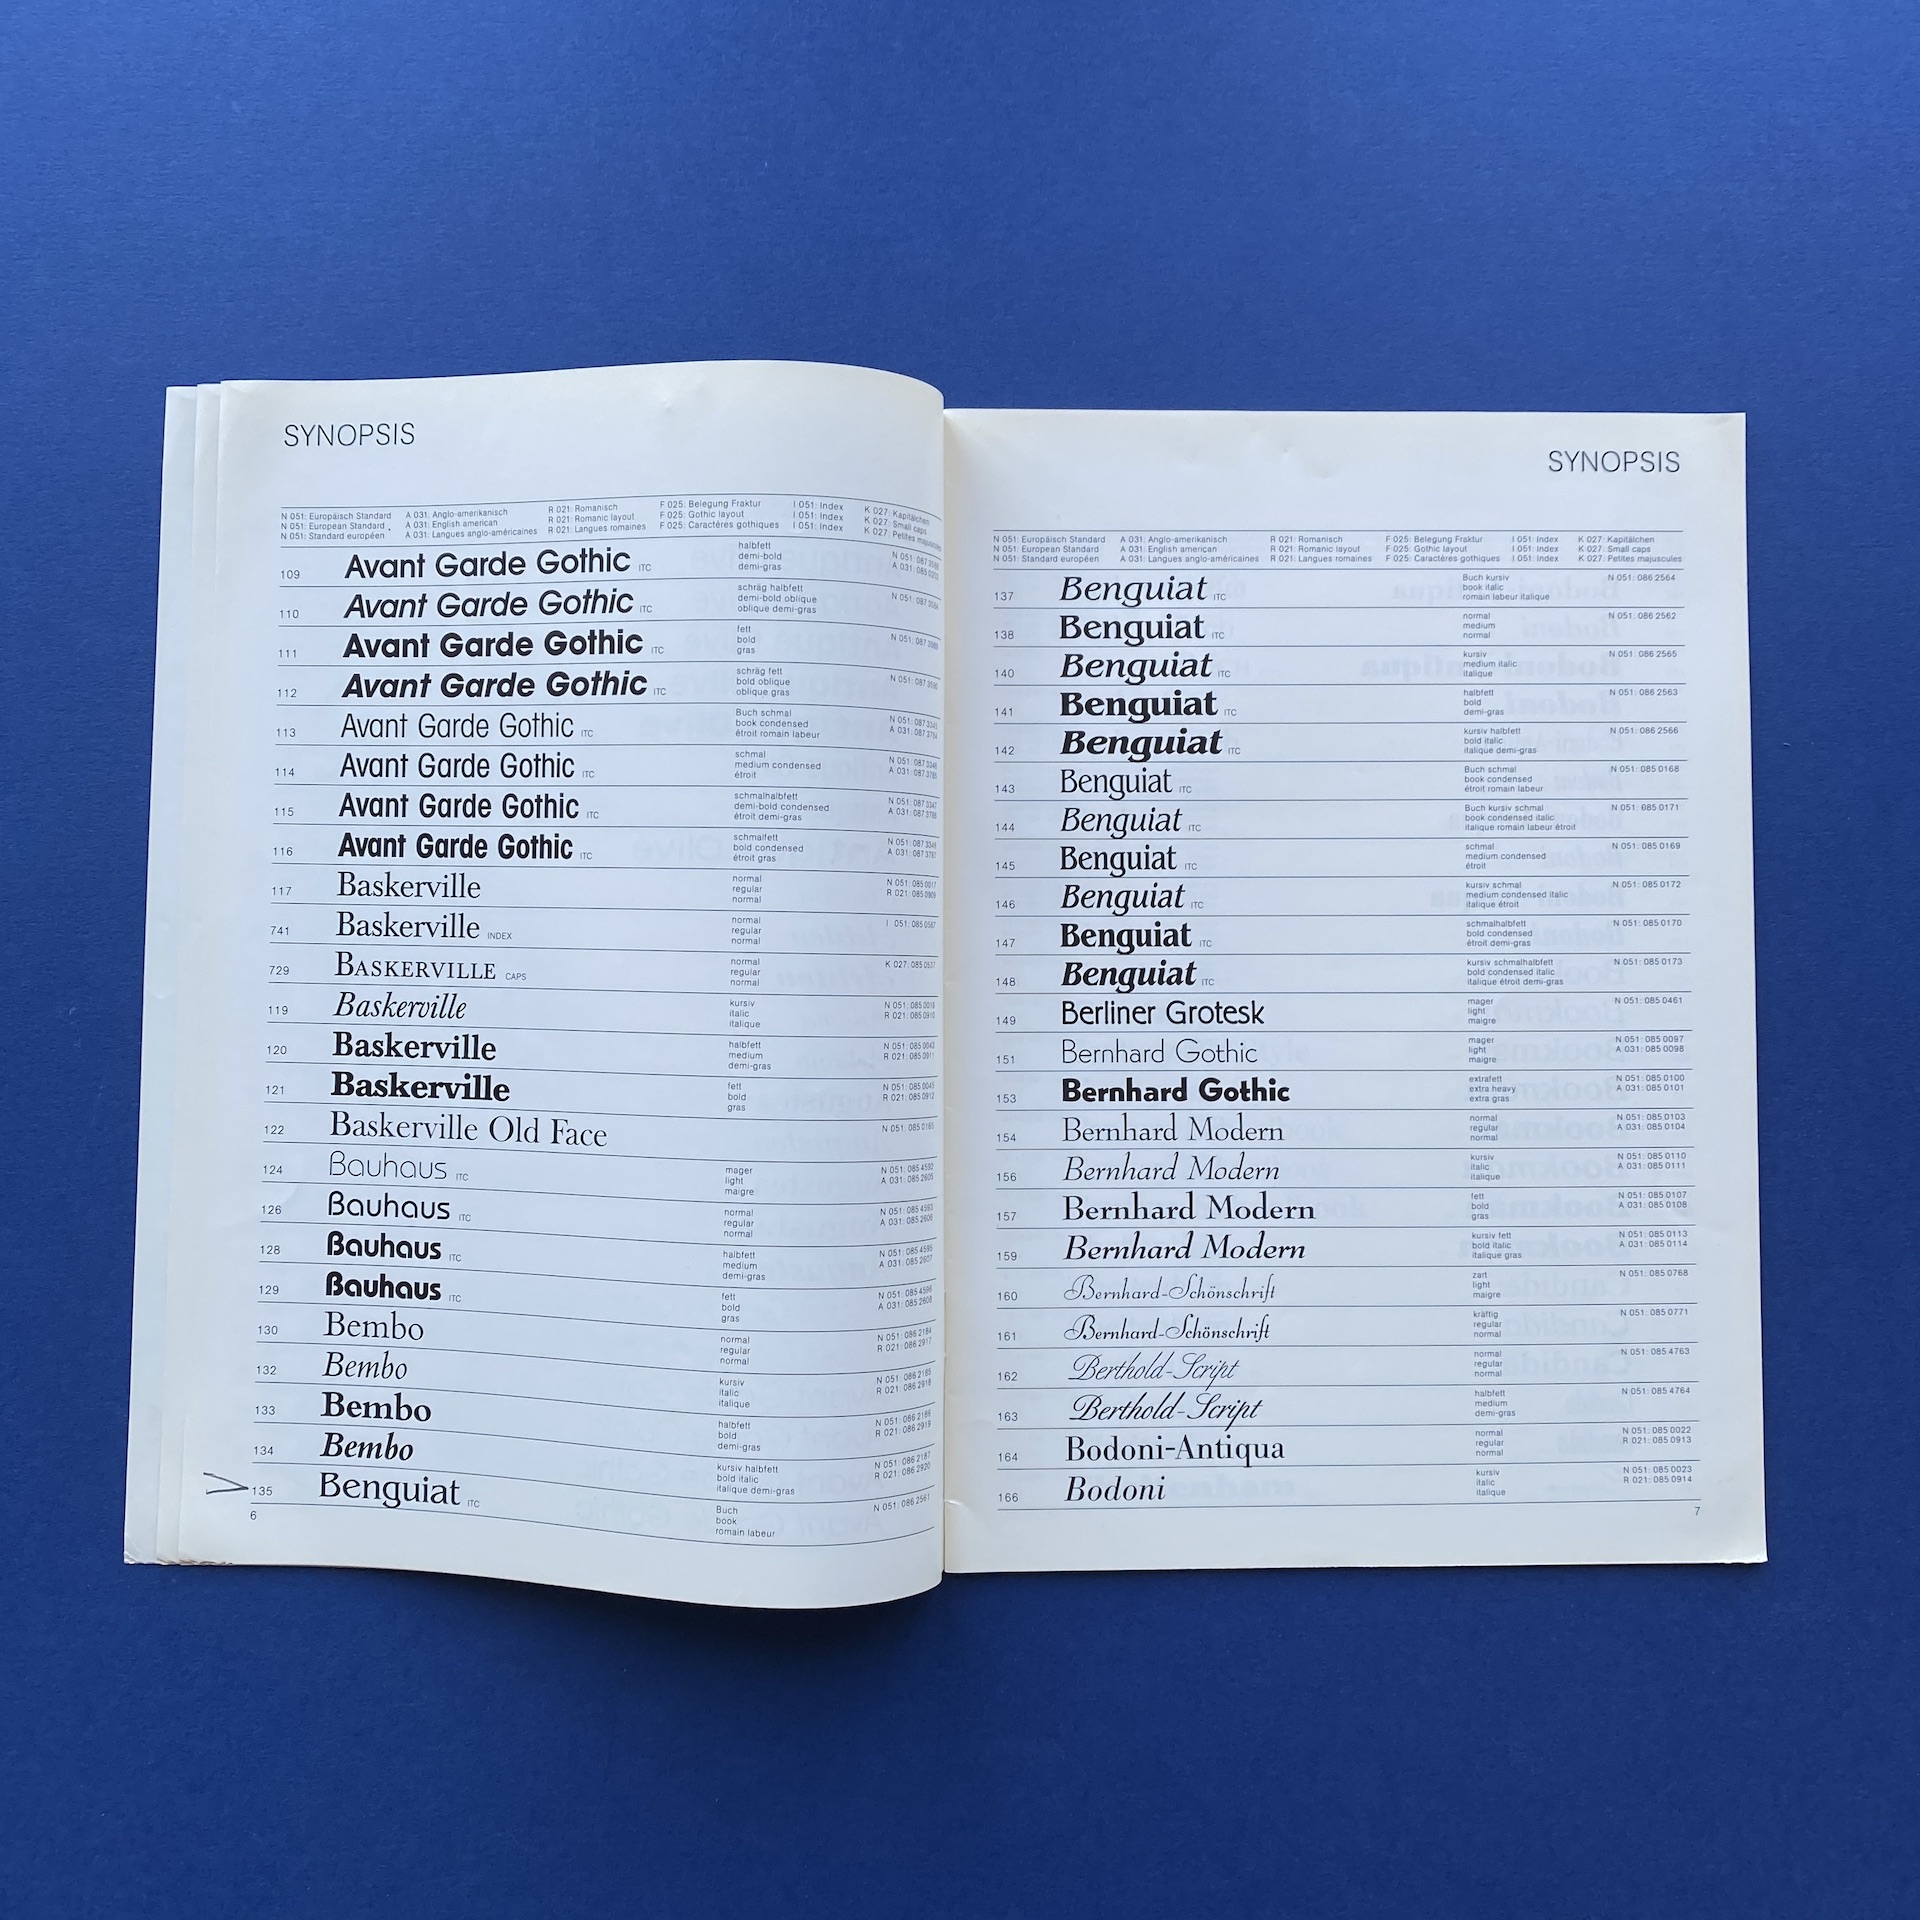 SYNOPSIS
N 051: Europäisch Standard A 031: Anglo-amerikanisch R 021: Romanisch F 025: Belegung Fraktur I 051: Index K 027: Kapitälchen
N 051: European Standard A 031: English american R 021: Romanic layout F 025: Gothic layout I 051: Index K 027: Small caps
N 051: Standard européen A 031: Langues anglo-américaines R 021: Langues romaines F 025: Caractères gothiques I 051: Index K 027: Petites majuscules
109 Avant Garde Gothic ITC
halbfett
demi-bold
demi-gras
N 051: 087
A 031: 085
110 Avant Garde Gothic ITC
schräg halbfett
demi-bold oblique
oblique demi-gras
N 051: 087
111 Avant Garde Gothic ITC
fett
bold
gras
N 051: 087
112 Avant Garde Gothic ITC
schräg fett
bold oblique
oblique gras
N 051: 087
113 Avant Garde Gothic ITC
Buch schmal
book condensed
étroit romain labeur
N 051: 087
A 031: 087
114 Avant Garde Gothic ITC
schmal
medium condensed
étroit
N 051: 087
A 031: 087
115 Avant Garde Gothic ITC
schmalhalbfett
demi-bold condensed
étroit demi-gras
N 051: 087
A 031: 087
116 Avant Garde Gothic ITC
schmalfett
bold condensed
étroit gras
N 051: 087
A 031: 087
117 Baskerville
normal
regular
normal
N 051: 085 0017
R 021: 085 0909
741 Baskerville INDEX
normal
regular
normal
I 051: 085 0567
729 BASKERVILLE CAPS
normal
regular
normal
K 027: 085 0537
119 Baskerville
kursiv
italic
italique
N 051: 085 0018
R 021: 085 0910
120 Baskerville
halbfett
medium
demi-gras
N 051: 085 0043
R 021: 085 0911
121 Baskerville
fett
bold
gras
N 051: 085 0045
R 021: 085 0912
122 Baskerville Old Face
N 051: 085 0165
124 Bauhaus ITC
mager
light
maigre
N 051: 085 4592
A 031: 085 2605
126 Bauhaus ITC
normal
regular
normal
N 051: 085 4593
A 031: 085 2606
128 Bauhaus ITC
halbfett
medium
demi-gras
N 051: 085 4595
A 031: 085 2607
129 Bauhaus ITC
fett
bold
gras
N 051: 085 4596
A 031: 085 2608
130 Bembo
normal
regular
normal
N 051: 086 2184
R 021: 086 2917
132 Bembo
kursiv
italic
italique
N 051: 086 2185
R 021: 086 2918
133 Bembo
halbfett
bold
demi-gras
N 051: 086 2186
R 021: 086 2919
134 Bembo
kursiv halbfett
bold italic
italique demi-gras
N 051: 086 2187
R 021: 086 2920
135 Benguiat ITC
Buch
book
romain labeur
N 051: 086 2561
6
SYNOPSIS
N 051: Europäisch Standard A 031: Anglo-amerikanisch R 021: Romanisch F 025: Belegung Fraktur I 051: Index K 027: Kapitälchen
N 051: European Standard A 031: English american R 021: Romanic layout F 025: Gothic layout I 051: Index K 027: Small caps
N 051: Standard européen A 031: Langues anglo-américaines R 021: Langues romaines F 025: Caractères gothiques I 051: Index K 027: Petites majuscules
137 Benguiat ITC
Buch kursiv
book italic
romain labeur italique
N 051: 086 2564
138 Benguiat ITC
normal
medium
normal
N 051: 086 2562
140 Benguiat ITC
kursiv
medium italic
italique
N 051: 086 2565
141 Benguiat ITC
halbfett
bold
demi-gras
N 051: 086 2563
142 Benguiat ITC
kursiv halbfett
bold italic
italique demi-gras
N 051: 086 2566
143 Benguiat ITC
Buch schmal
book condensed
étroit romain labeur
N 051: 085 0168
144 Benguiat ITC
Buch kursiv schmal
book condensed italic
italique romain labeur étroit
N 051: 085 0171
145 Benguiat ITC
schmal
medium condensed
étroit
N 051: 085 0169
146 Benguiat ITC
kursiv schmal
medium condensed italic
italique étroit
N 051: 085 0172
147 Benguiat ITC
schmalhalbfett
bold condensed
étroit demi-gras
N 051: 085 0170
148 Benguiat ITC
kursiv schmalhalbfett
bold condensed italic
italique étroit demi-gras
N 051: 085 0173
149 Berliner Grotesk
mager
light
maigre
N 051: 085 0461
151 Bernhard Gothic
mager
light
maigre
N 051: 085 0097
A 031: 085 0098
153 Bernhard Gothic
extrafett
extra heavy
extra gras
N 051: 085 0100
A 031: 085 0101
154 Bernhard Modern
normal
regular
normal
N 051: 085 0103
A 031: 085 0104
156 Bernhard Modern
kursiv
italic
italique
N 051: 085 0110
A 031: 085 0111
157 Bernhard Modern
fett
bold
gras
N 051: 085 0107
A 031: 085 0108
159 Bernhard Modern
kursiv fett
bold italic
italique gras
N 051: 085 0113
A 031: 085 0114
160 Bernhard-Schönschrift
zart
light
maigre
N 051: 085 0768
161 Bernhard-Schönschrift
kräftig
regular
normal
N 051: 085 0771
162 Berthold-Script
normal
regular
normal
N 051: 085 4763
163 Berthold-Script
halbfett
medium
demi-gras
N 051: 085 4764
164 Bodoni-Antiqua
normal
regular
normal
N 051: 085 0022
R 021: 085 0913
166 Bodoni
kursiv
italic
italique
N 051: 085 0023
R 021: 085 0914
7